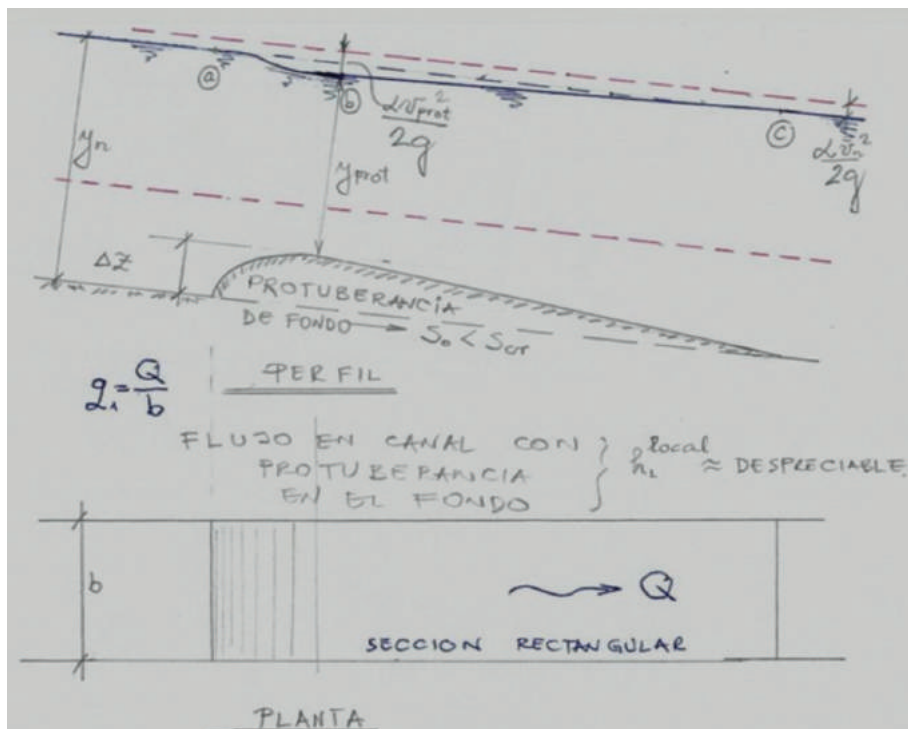 ⓐ
ⓑ
ⓒ
yₙ
αv²prot
2g
yprot
αvₙ²
2g
ΔZ
PROTUBERANCIA
DE FONDO → S₀ < Scr
q₁ = Q
b
PERFIL
FLUJO EN CANAL CON
PROTUBERANCIA
EN EL FONDO
local
≈ DESPRECIABLE
b
Q
SECCION RECTANGULAR
PLANTA